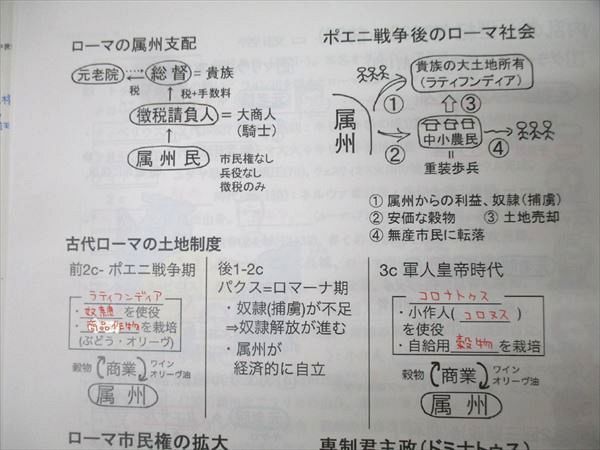 ローマの属州支配
元老院 総督 = 貴族
税 税+手数料
徴税請負人 = 大商人
(騎士)
属州民 市民権なし
兵役なし
徴税のみ
ポエニ戦争後のローマ社会
貴族の大土地所有
(ラティフンディア)
① ③
属州
中小農民
② ④
=
重装歩兵
① 属州からの利益、奴隷(捕虜)
② 安価な穀物 ③ 土地売却
④ 無産市民に転落
古代ローマの土地制度
前2c- ポエニ戦争期
ラティフンディア
・奴隷を使役
・商品作物を栽培
(ぶどう・オリーヴ)
穀物 商業 ワイン
オリーヴ油
属州
後1-2c
パクス=ロマーナ期
・奴隷(捕虜)が不足
⇒奴隷解放が進む
・属州が
経済的に自立
3c 軍人皇帝時代
コロナトゥス
・小作人(コロヌス)
を使役
・自給用穀物を栽培
穀物 商業 ワイン
オリーヴ油
属州
ローマ市民権の拡大
専制君主政(ドミナトゥス)